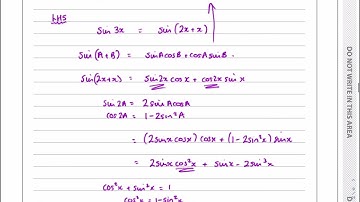 LHS
sin 3x = sin (2x+x)
sin (A+B) = sinAcosB + cosAsinB
sin(2x+x) = sin2x cosx + cos2x sinx
sin 2A = 2sinAcosA
cos 2A = 1-2sin²A
= (2sinx cosx) cosx + (1-2sin²x) sinx
= 2sinx cos²x + sinx - 2sin³x
cos²x + sin²x = 1
cos²x = 1-sin²x
DO NOT WRITE IN THIS AREA